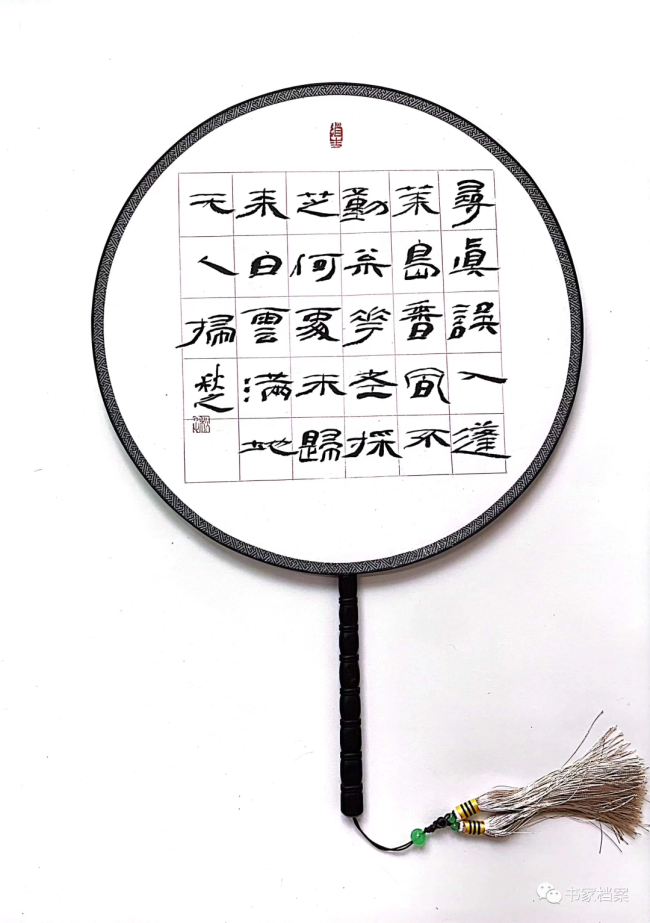 尋眞誤入蓬
莱島香風不
動松花老採
芝何處未歸
来白雲滿地
无人掃
书家档案